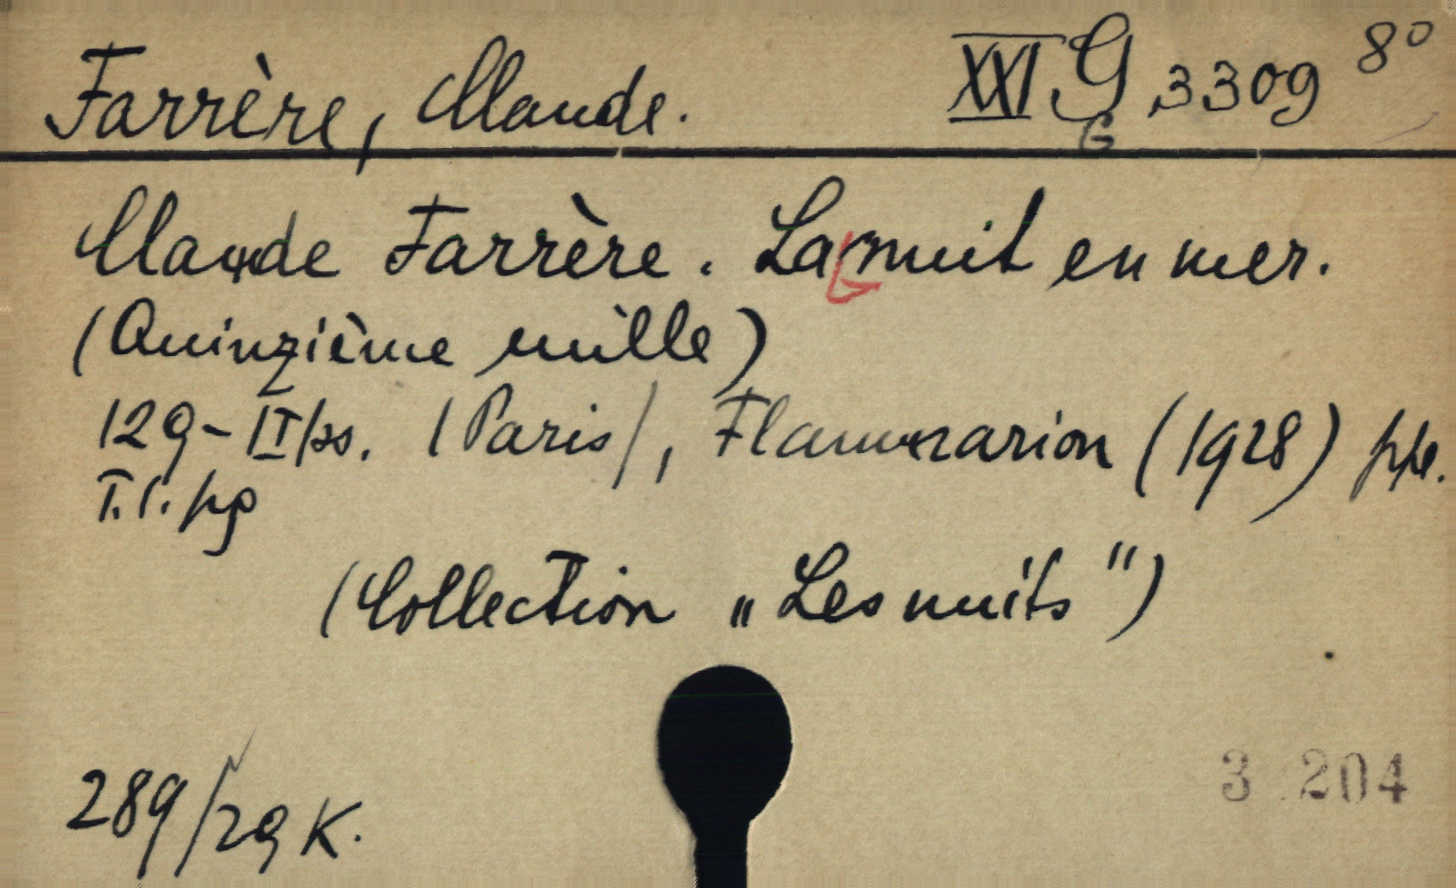 Farrère, Claude. XXI G 3309 8°
G
Claude Farrère. La nuit en mer.
(Quinzième mille)
129-II ss. (Paris), Flammarion (1928) ppe.
(Collection „Les nuits")
289/29 K.
3 204